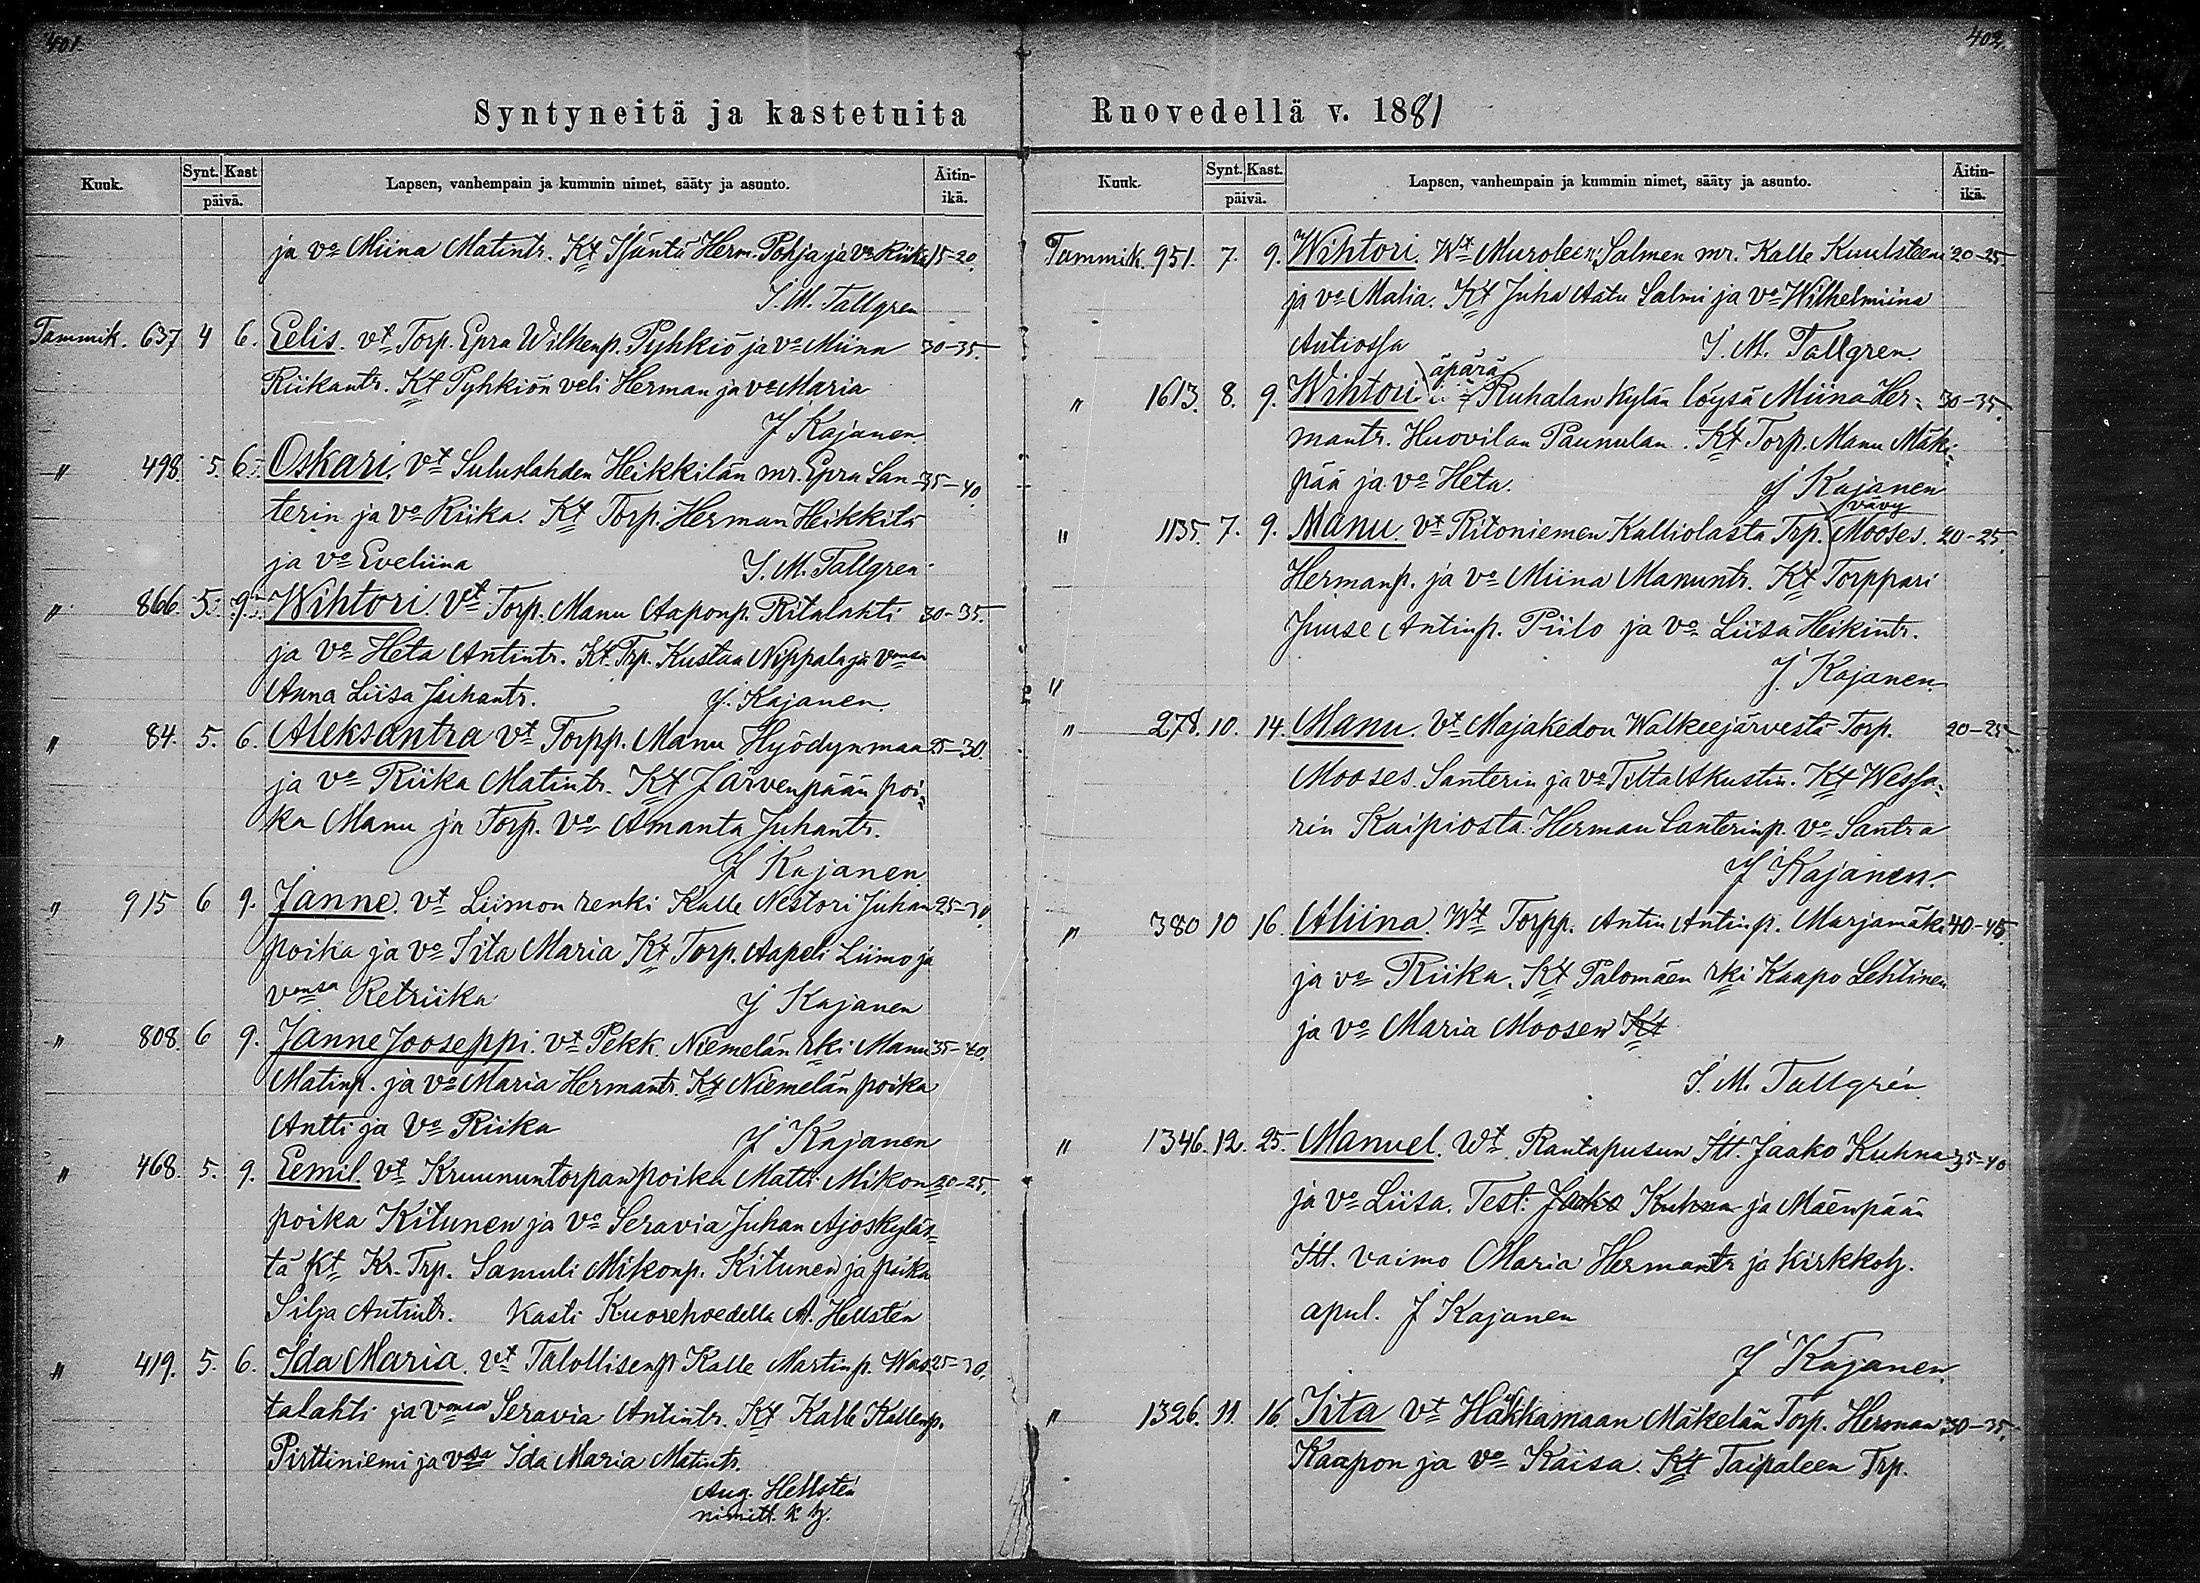 401
Syntyneitä ja kastetuita
Kuuk. Synt. Kast päivä. Lapsen, vanhempain ja kummin nimet, sääty ja asunto. Äitin-ikä.
ja vo Miina Matintr. Kt Isäntä Herm. Pohja ja vo Riika 15-20.
I. M. Tallgren
Tammik. 637 4 6. Eelis. vt Torp. Epra Wilhenp. Pyhkiö ja vo Miina 30-35.
Riikantr. Kt Pyhkiön veli Herman ja vo Maria
J Kajanen.
" 498. 5. 6. Oskari. vt Suluslahden Heikkilän mr. Epra San- 35-40.
terin ja vo Riika. Kt Torp. Herman Heikkilä
ja vo Eveliina I. M. Tallgren.
" 866. 5. 9. Wihtori vt Torp. Manu Aaponp. Ritalahti 30-35.
ja vo Heta Antintr. Kt. Trp. Kustaa Nippala ja vonsa
Anna Liisa Juhantr. J. Kajanen
" 84. 5. 6. Aleksantra vt Torpp. Manu Hyödynmaa 25-30.
ja vo Riika Matintr. Kt Järvenpään poi-
ka Manu ja Torp. vo Amanta Juhantr.
J Kajanen
" 915 6 9. Janne. vt Liimon renki Kalle Nestori Juhan 25-30
poika ja vo Iita Maria Kt Torp. Aapeli Liimo ja
vonsa Retriika J Kajanen
" 808. 6 9. Janne Jooseppi. vt Pekk. Niemelän rki Manu 35-40.
Matinp. ja vo Maria Hermantr. Kt Niemelän poika
Antti ja vo Riika J Kajanen
" 468. 5. 9. Eemil. vt Kruununtorpan poika Matti Mikon- 20-25.
poika Kitunen ja vo Seravia Juhan Ajoskyläs-
tä Kt Kr. Trp. Samuli Mikonp. Kitunen ja piika
Silja Antintr. Kasti Kuorehvedellä A. Hellsten
" 419. 5. 6. Ida Maria. vt Talollisenp Kalle Martinp. Waa- 25-30.
talahti ja vonsa Seravia Antintr. Kt Kalle Kallenp.
Pirttiniemi ja vnsa Ida Maria Matintr.
Aug. Hellsten
nimitt. k. h.
402.
Ruovedellä v. 1881
Kuuk. Synt. Kast. päivä. Lapsen, vanhempain ja kummin nimet, sääty ja asunto. Äitin-ikä.
Tammik. 951. 7. 9. Wihtori. Wt Muroleen Salmen mr. Kalle Kuulsteeni 20-25
ja vo Malia. Kt Juha Aatu Salmi ja vo Wilhelmiina
Autiossa I. M. Tallgren.
äpärä
" 1613. 8. 9. Wihtori Ruhalan kylän löysä Miina Her- 30-35.
mantr. Huovilan Paunulan. Kt Torp. Manu Mäki-
pää ja vo Heta. J Kajanen
vävy
" 1135. 7. 9. Manu. vt Ritoniemen Kalliolasta Trp. Mooses. 20-25.
Hermanp. ja vo Miina Manuntr. Kt Torppari
Juuse Antinp. Piilo ja vo Liisa Heikintr.
" J. Kajanen.
" 278. 10. 14. Manu. vt Majakedon Walkeejärvestä Torp. 20-25
Mooses Santerin ja vo Tilta Akustin. Kt Wessa-
rin Kaipiosta. Herman Santerinp. vo Santra
J Kajanen.
" 380 10 16. Aliina. Wt Torpp. Antin Antinp. Marjamäki 40-45.
ja vo Riika. Kt Palomäen rki Kaapo Lehtinen
ja vo Maria Moosen Kt
I. M. Tallgrén
" 1346. 12. 25. Manuel. Wt Rantapusun Itt. Jaako Kuhna 35-40
ja vo Liisa. Test. Jaako Kuhna ja Mäenpään
Itt. vaimo Maria Hermantr ja kirkkoh.
apul. J Kajanen
J Kajanen.
" 1326. 11. 16 Iita vt Häkkamaan Mäkelän Torp. Herman 30-35.
Kaapon ja vo Kaisa. Kt Taipaleen Trp.